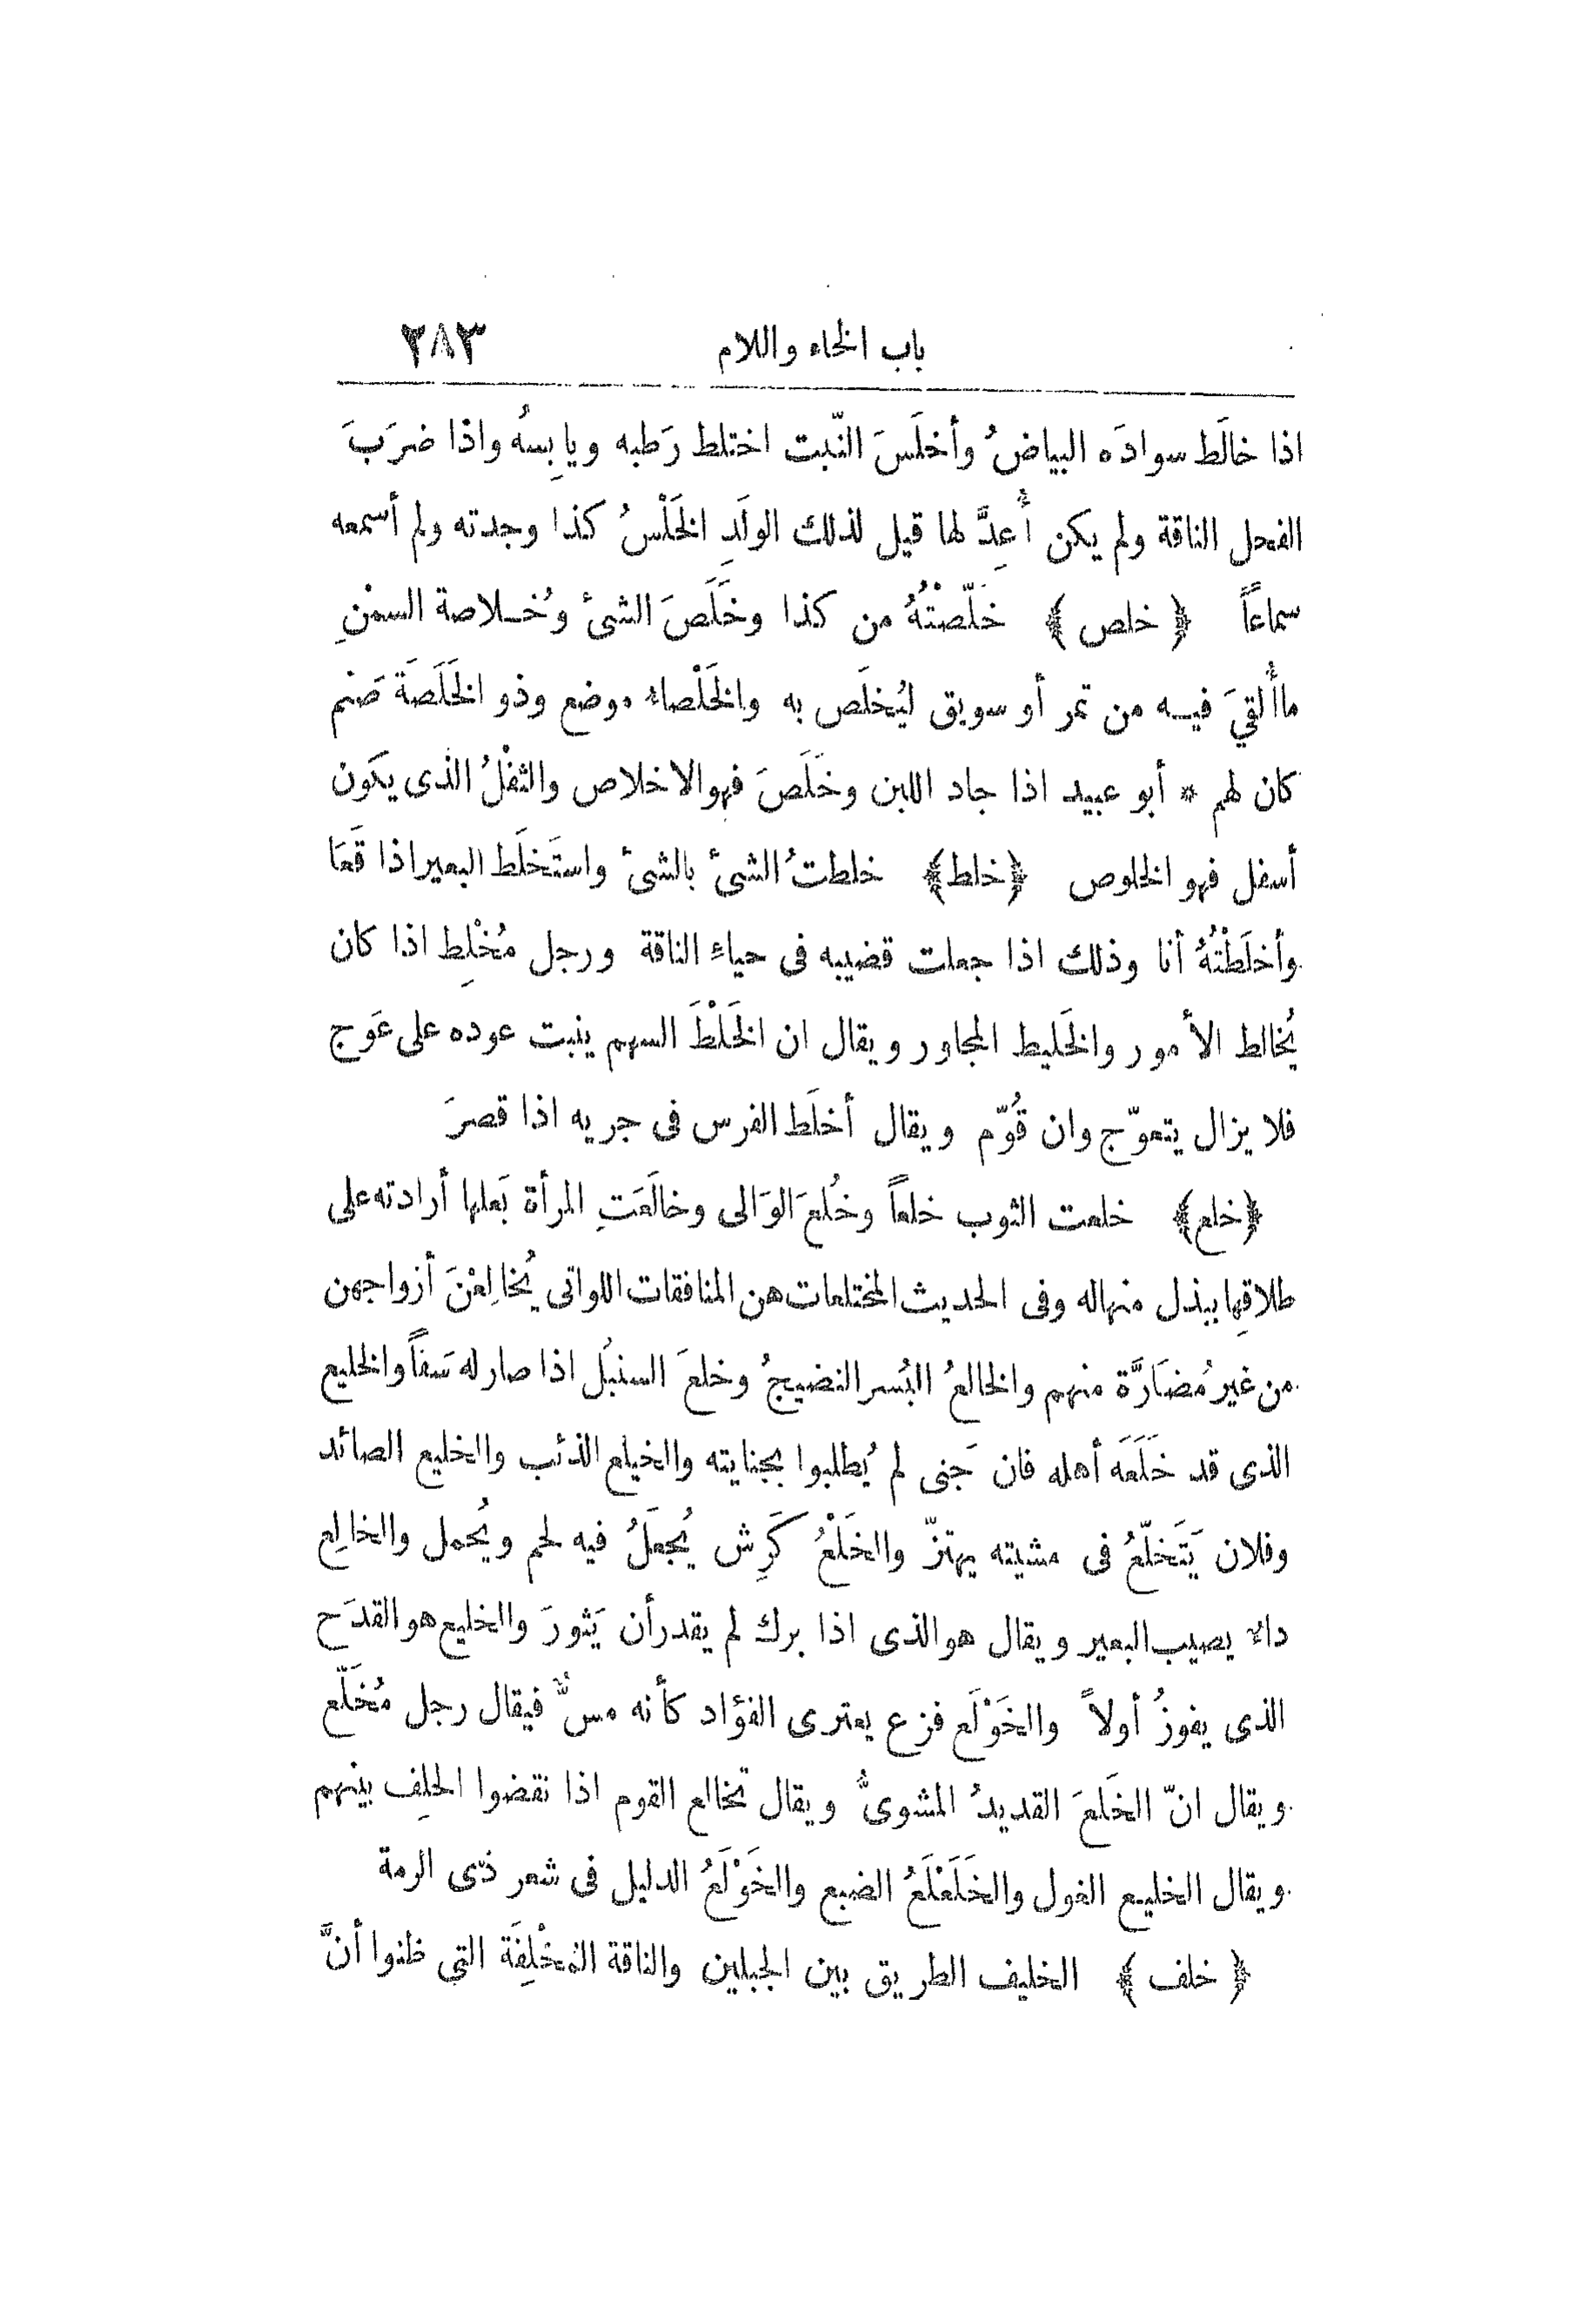 باب الخاء واللام ٢٨٣
اذا خالَط سوادَه البياضُ وأخلَسَ النّبت اختلط رَطبه ويابِسهُ واذا ضرَبَ
الفحل الناقة ولم يكن أُعِدَّ لها قيل لذلك الولَدِ الخَلْسُ كذا وجدته ولم أسمعه
سماعاً ﴿ خلص ﴾ خَلّصْتُهُ من كذا وخَلَصَ الشئ وخُـلاصة السمْنِ
ماأُلقيَ فيـه من تمر أو سويق ليُخلَص به والخَلْصاء موضع وذو الخَلَصَة صَنم
كان لهم * أبو عبيد اذا جاد اللبن وخَلَصَ فهوالاخلاص والثفْلُ الذى يكون
أسفل فهو الخلوص ﴿خلط﴾ خلطتُ الشئ بالشئ واستَخلَط البعيراذا قَعَا
وأخلَطْتُهُ أنا وذلك اذا جعلت قضيبه فى حياءِ الناقة ورجل مُخْلِط اذا كان
يُخالط الأمور والخَليط المجاور ويقال ان الخَلْطَ السهم ينبت عوده على عَوج
فلا يزال يتعوّج وان قُوّم ويقال أخلَط الفرس فى جريه اذا قصرَ
﴿خلع﴾ خلعت الثوب خلعاً وخُلعَ الوَالى وخالَعَتِ المرأة بَعلها أرادته على
طلاقِها ببذل منهاله وفى الحديث المختلعات هن المنافقات اللواتى يُخالِعْنَ أزواجهن
من غير مُضَارَّة منهم والخالعُ البُسر النضيجُ وخلعَ السنبُل اذا صار له سَفاً والخليع
الذى قد خَلَعَه أهله فان جَنى لم يُطلبوا بجنايته والخيلع الذئب والخليع الصائد
وفلان يَتَخلّعُ فى مشيته يهتزّ والخَلْعُ كَرِش يُجعَلُ فيه لحم ويُحمل والخالِع
داء يصيب البعير ويقال هوالذى اذا برك لم يقدرأن يَثورَ والخليع هو القدَح
الذى يفوزُ أولاً والخَوْلَع فزع يعترى الفؤاد كأنه مسٌّ فيقال رجل مُخَلّع
ويقال انّ الخَلعَ القديدُ المشوىُّ ويقال تخالع القوم اذا نقضوا الحلِف بينهم
ويقال الخليع الغول والخَلَعْلَعُ الضبع والخَوْلَعُ الدليل فى شعر ذى الرمة
﴿ خلف ﴾ الخليف الطريق بين الجبلين والناقة المخْلِفَة التى ظنوا أنَّ